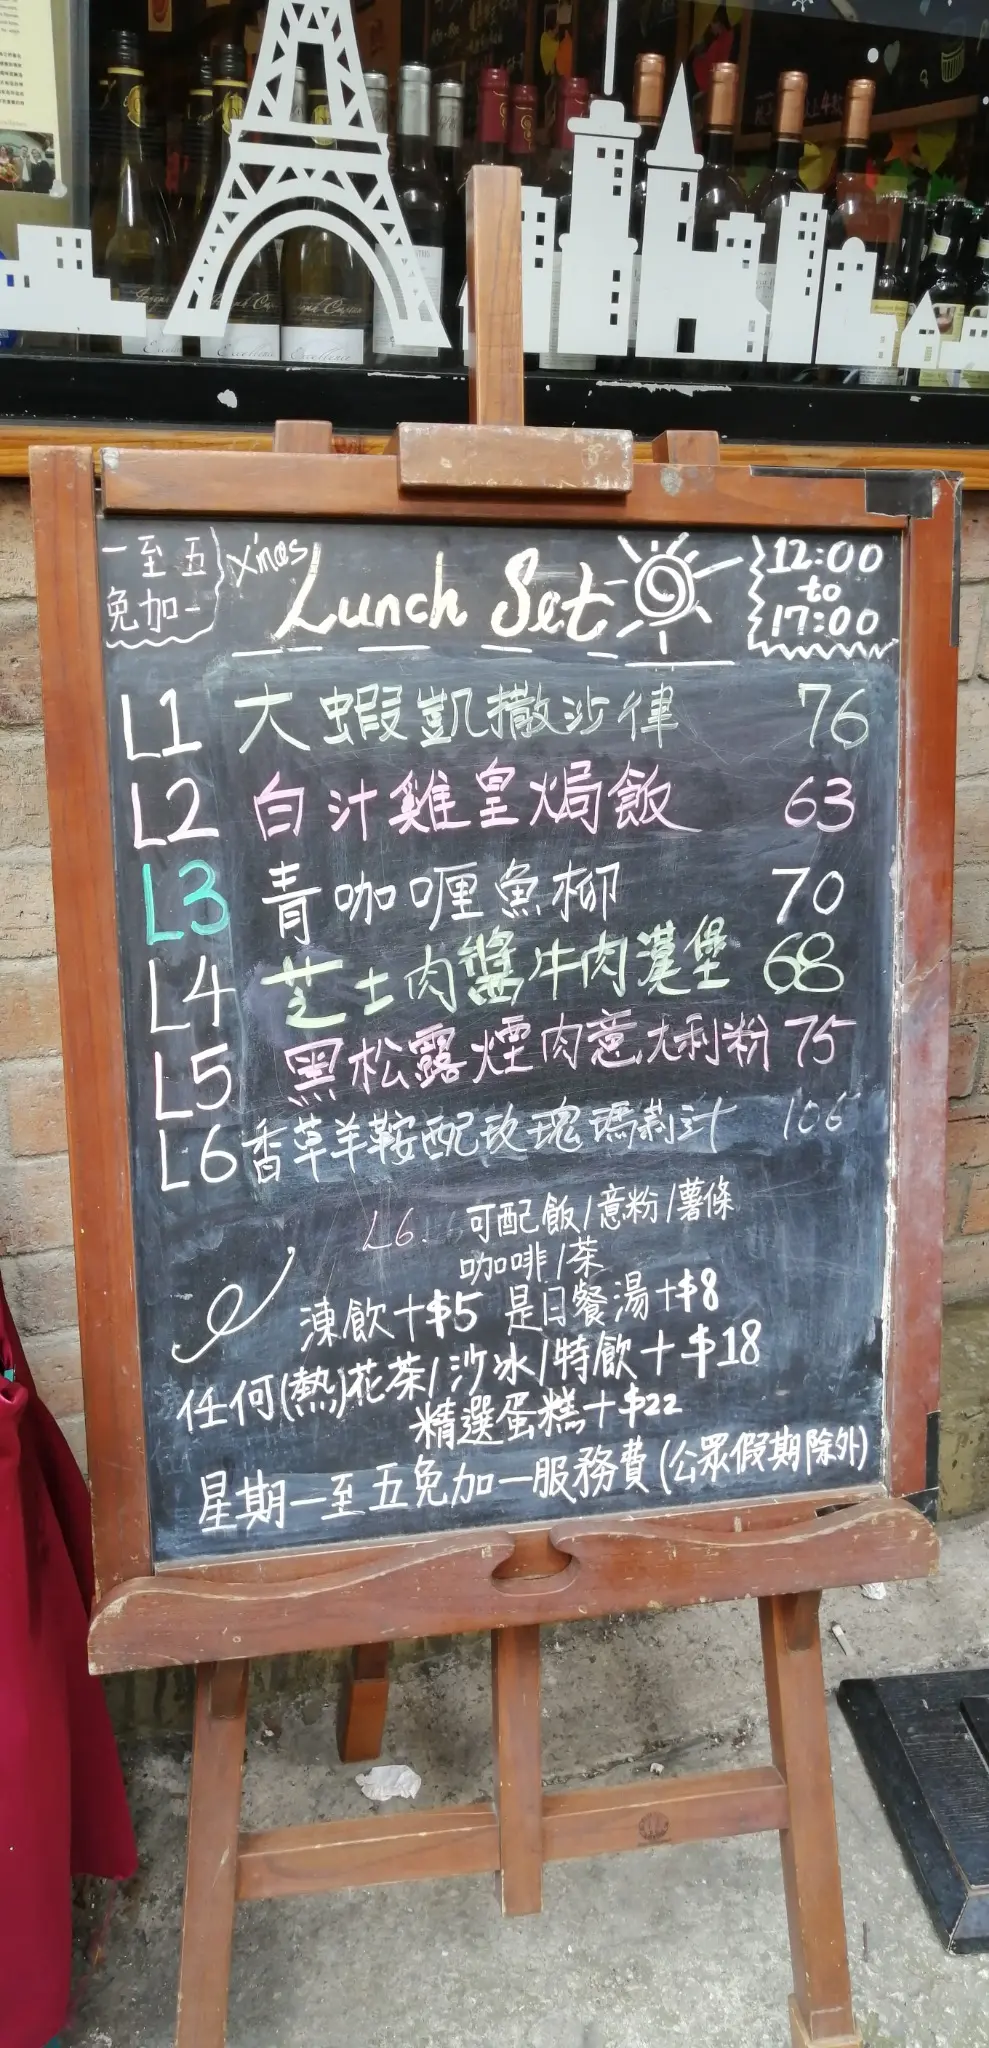 一至五
免加一
X'mas
Lunch Set
12:00
to
17:00
L1 大蝦凱撒沙律 76
L2 白汁雞皇焗飯 63
L3 青咖喱魚柳 70
L4 芝士肉醬牛肉漢堡 68
L5 黑松露煙肉意大利粉 75
L6 香草羊鞍配玫瑰瑪莉汁 106
L6. 可配飯/意粉/薯條
咖啡/茶
凍飲+$5 是日餐湯+$8
任何(熱)花茶/沙冰/特飲+$18
精選蛋糕+$22
星期一至五免加一服務費(公眾假期除外)